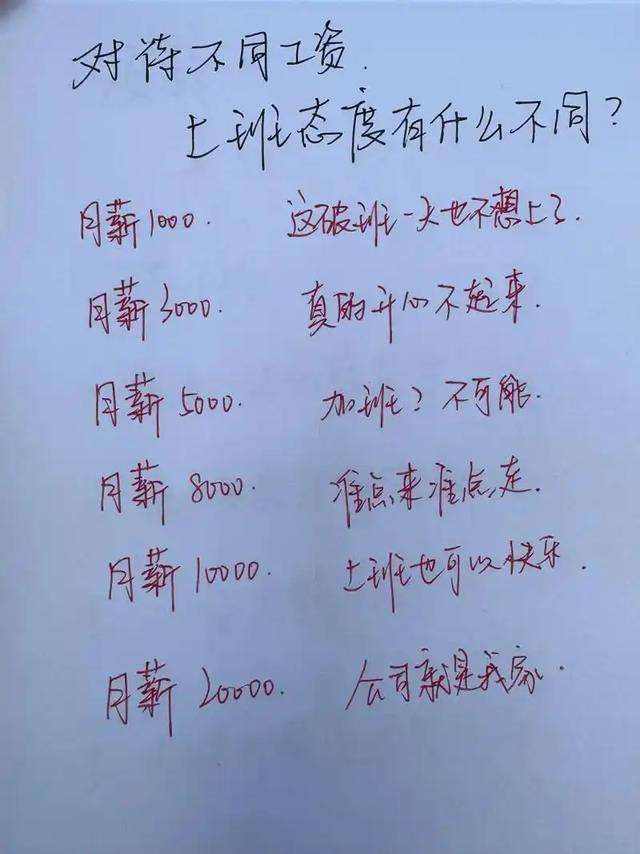 对待不同工资.
上班态度有什么不同?
月薪1000. 这破班一天也不想上了.
月薪3000. 真的开心不起来.
月薪5000. 加班?不可能.
月薪8000. 准点来准点走.
月薪10000. 上班也可以快乐.
月薪20000. 公司就是我家.